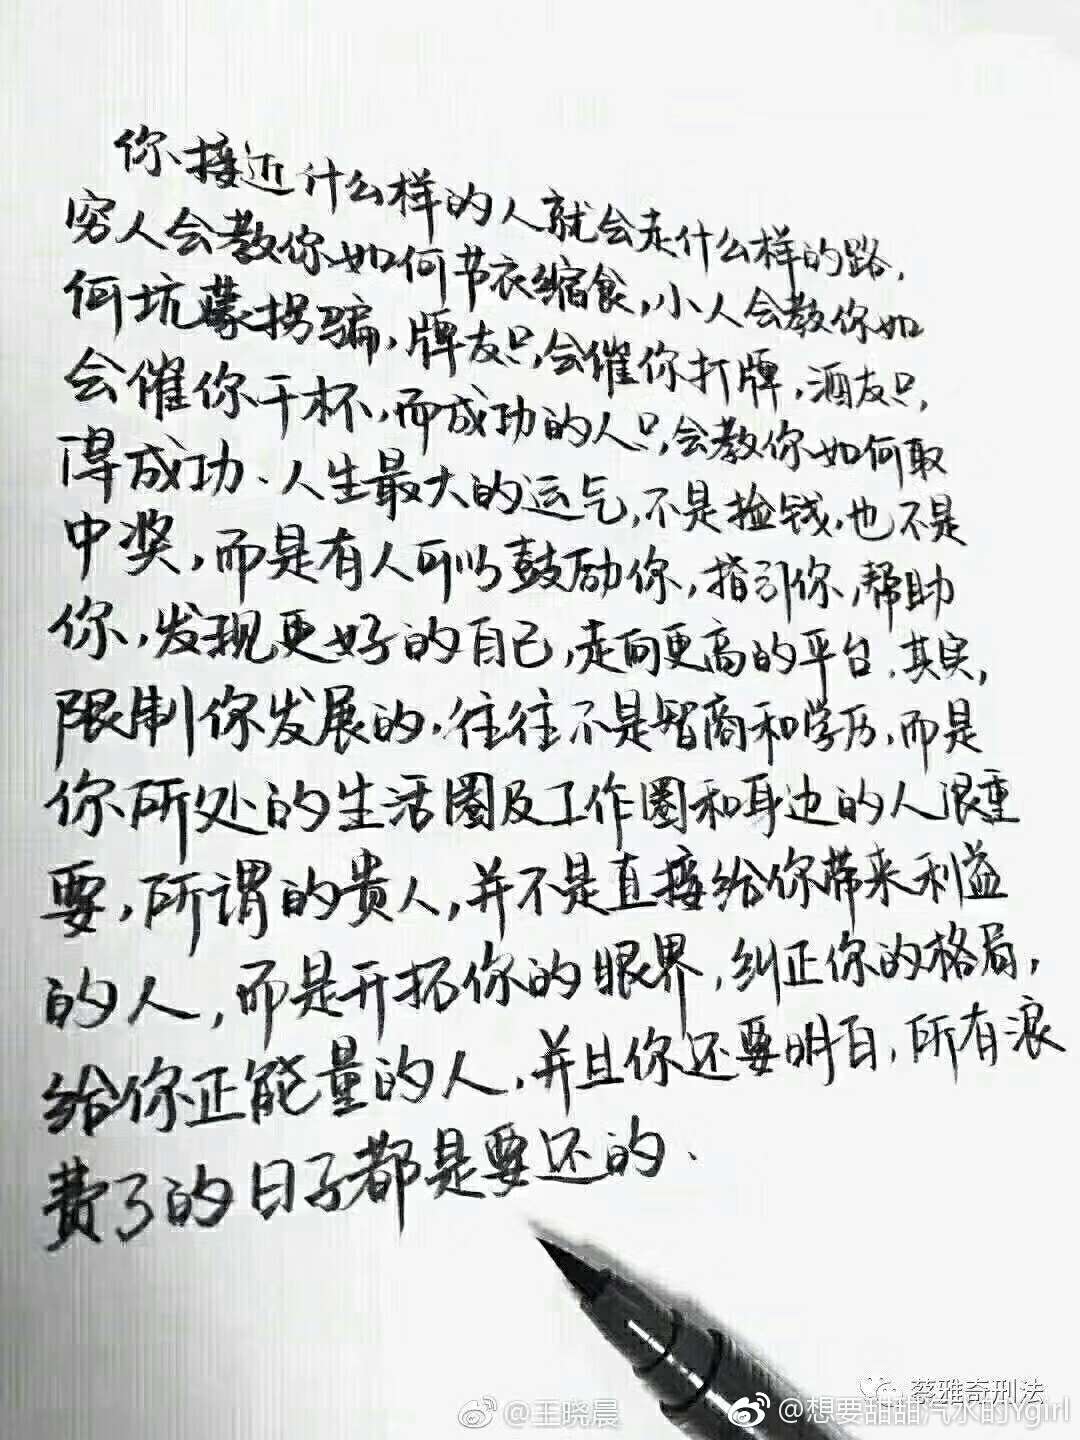 你接近什么样的人就会走什么样的路,
穷人会教你如何节衣缩食,小人会教你如
何坑蒙拐骗,牌友只会催你打牌,酒友只
会催你干杯,而成功的人只会教你如何取
得成功、人生最大的运气,不是捡钱,也不是
中奖,而是有人可以鼓励你,指引你,帮助
你,发现更好的自己,走向更高的平台.其实,
限制你发展的,往往不是智商和学历,而是
你所处的生活圈及工作圈和身边的人很重
要,所谓的贵人,并不是直接给你带来利益
的人,而是开拓你的眼界,纠正你的格局,
给你正能量的人,并且你还要明白,所有浪
费了的日子都是要还的、
蔡雅奇刑法
@王晓晨
@想要甜甜汽水的Ygirl